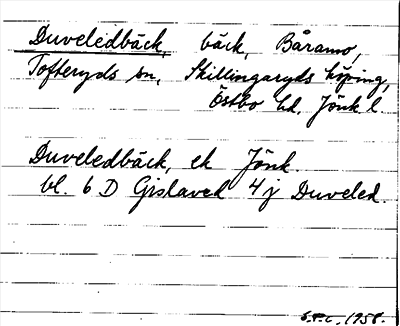 Duveledbäck, bäck, Båramo,
Tofteryds sn, Skillingaryds köping,
Östbo hd, Jönk l.
Duveledbäck, ek Jönk.
bl. 6 D Gislaved 4 j Duveled.
1958.